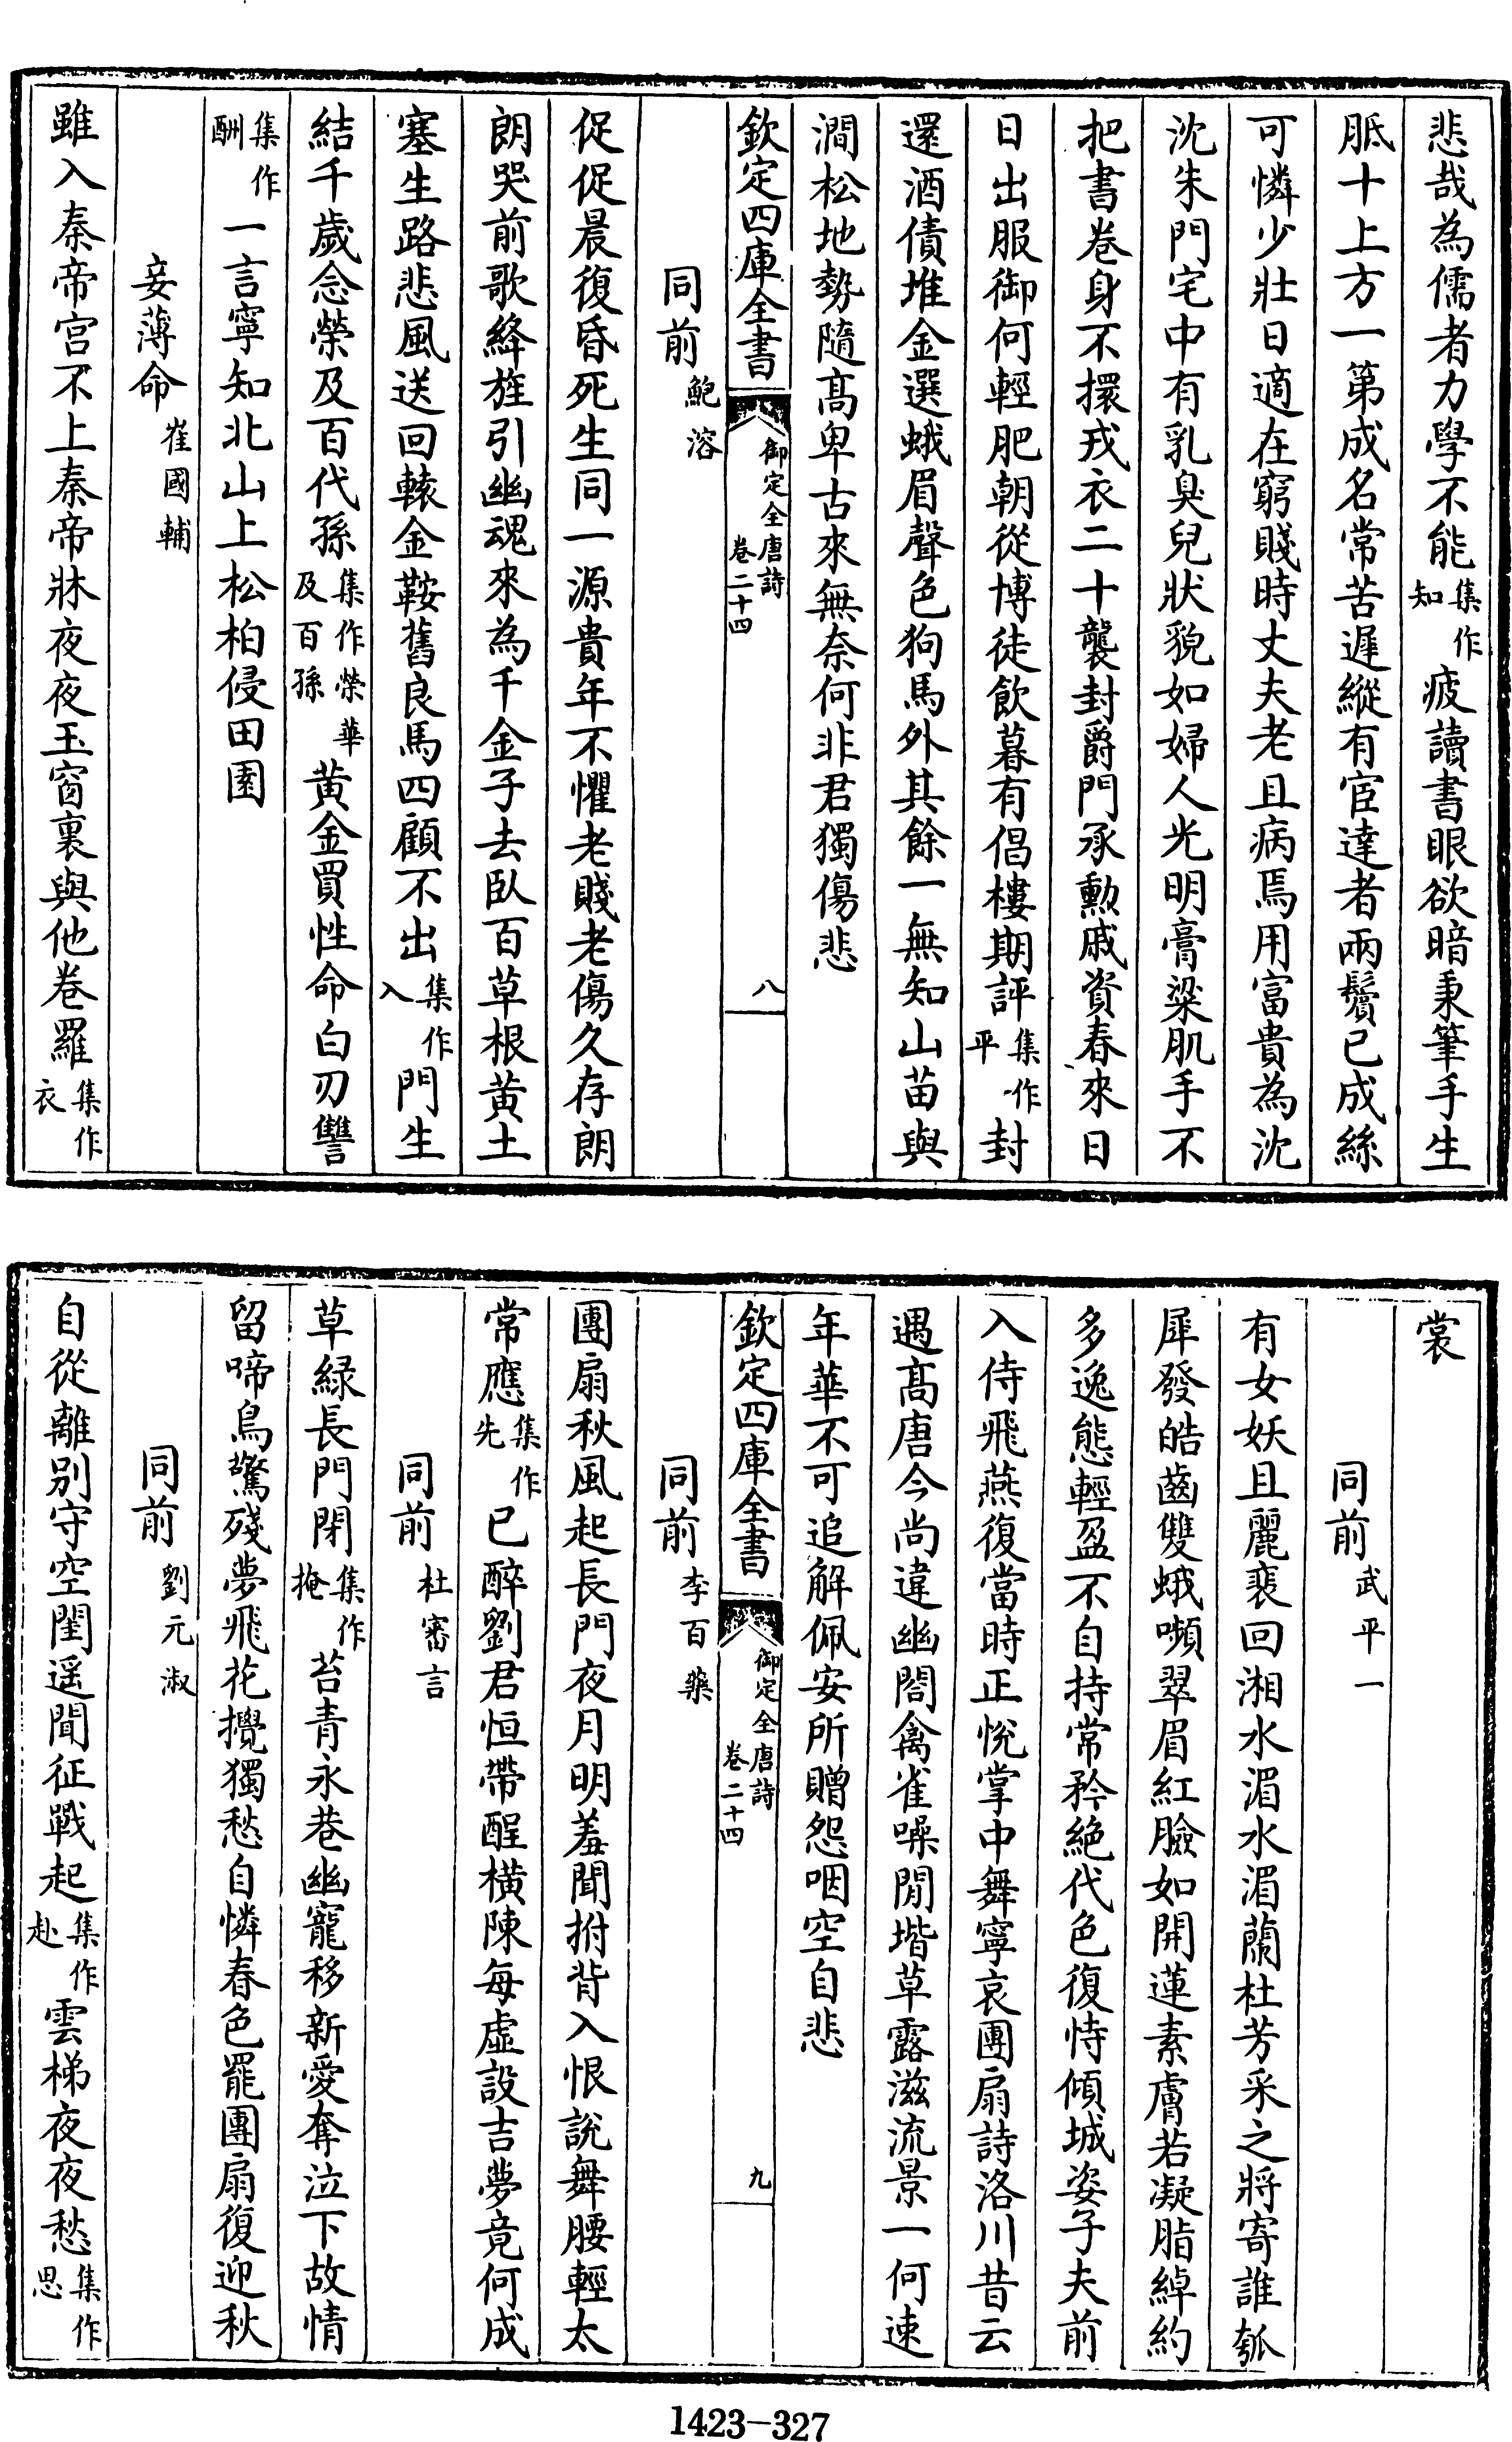 悲哉為儒者力學不能集作知疲讀書眼欲暗秉筆手生
胝十上方一第成名常苦遲縱有宦達者兩鬢已成絲
可憐少壯日適在窮賤時丈夫老且病焉用富貴為沈
沈朱門宅中有乳臭兒狀貌如婦人光明膏粱肌手不
把書卷身不擐戎衣二十襲封爵門承勲戚資春來日
日出服御何輕肥朝從博徒飲暮有倡樓期評集作平封
還酒債堆金選蛾眉聲色狗馬外其餘一無知山苗與
澗松地勢隨髙卑古來無奈何非君獨傷悲
欽定四庫全書 御定全唐詩 卷二十四 八
同前 鮑溶
促促晨復昏死生同一源貴年不懼老賤老傷久存朗
朗哭前歌絳旌引幽魂來為千金子去臥百草根黄土
塞生路悲風送回轅金鞍舊良馬四顧不出集作入門生
結千歲念榮及百代孫集作榮華及百孫黄金買性命白刃讐
集作酬一言寧知北山上松柏侵田園
妾薄命 崔國輔
雖入秦帝宫不上秦帝牀夜夜玉窗裏與他卷羅集作衣
裳
同前 武平一
有女妖且麗裵回湘水湄水湄蘭杜芳采之將寄誰瓠
犀發皓齒雙蛾嚬翠眉紅臉如開蓮素膚若凝脂綽約
多逸態輕盈不自持常矜絶代色復恃傾城姿子夫前
入侍飛燕復當時正恱掌中舞寧哀團扇詩洛川昔云
遇髙唐今尚違幽閤禽雀噪閒堦草露滋流景一何速
年華不可追解佩安所贈怨咽空自悲
欽定四庫全書 御定全唐詩 卷二十四 九
同前 李百藥
團扇秋風起長門夜月明羞聞拊背入恨説舞腰輕太
常應集作先已醉劉君恒帶酲橫陳每虛設吉夢竟何成
同前 杜審言
草緑長門閉集作掩苔青永巷幽寵移新愛奪泣下故情
留啼鳥驚殘夢飛花攪獨愁自憐春色罷團扇復迎秋
同前 劉元淑
自從離別守空閨遥聞征戰起集作赴雲梯夜夜愁集作思
1423-327